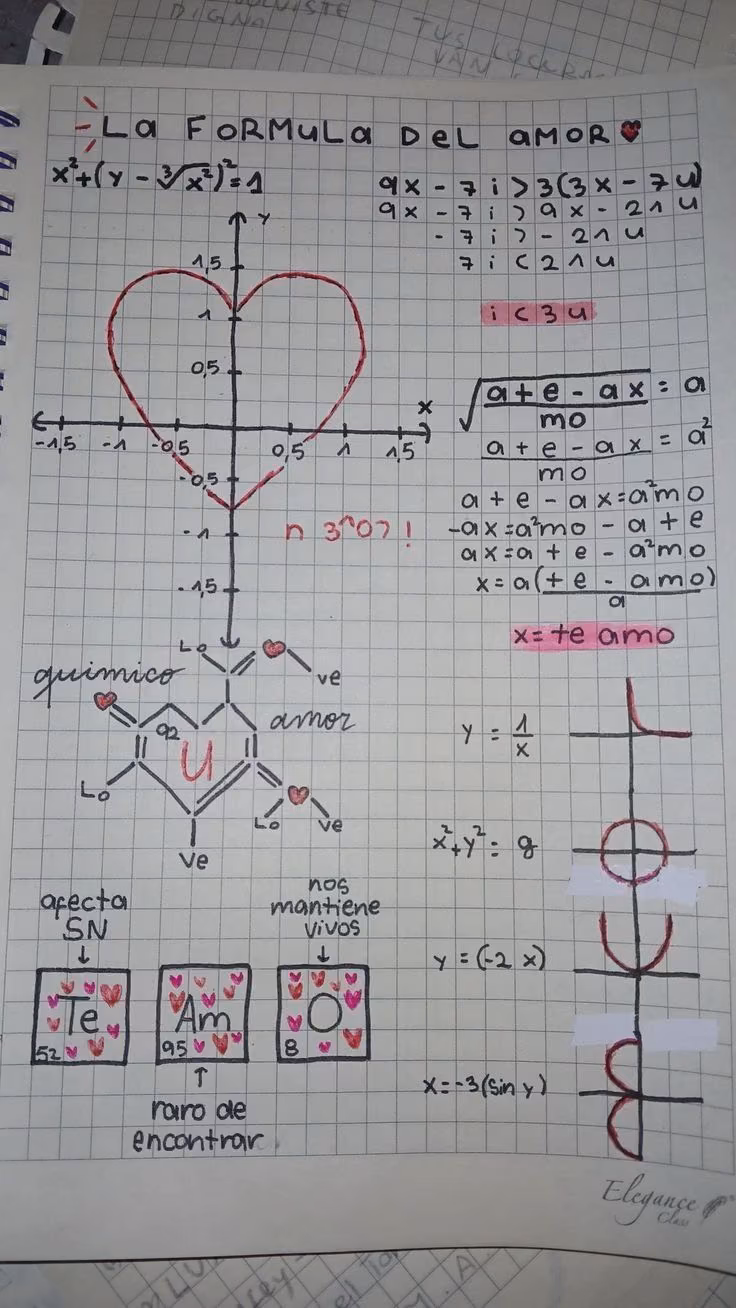 LVISTE
DIGNA
TUS
VAN
LA FORMULA DEL AMOR
x²+(y - ∛x²)²=1
9x - 7i > 3(3x - 7u)
9x - 7i > 9x - 21u
- 7i > - 21u
7i < 21u
i < 3u
y
1,5
1
0,5
x
-1,5 -1 -0,5 0,5 1 1,5
-0,5
-1
-1,5
√((a + e - ax)/mo) = a
(a + e - ax)/mo = a²
a + e - ax = a²mo
-ax = a²mo - a + e
ax = a + e - a²mo
x = a(+ e - amo)/a
x = te amo
n 3^07!
quimico
amor
Lo
ve
92
U
Lo
Lo ve
Ve
y = 1/x
x²+y² = 9
y = (-2 x)
x = -3(sin y)
afecta
SN
↓
Te
52
Am
95
↑
raro de
encontrar
nos
mantiene
vivos
↓
O
8
Elegance
Class